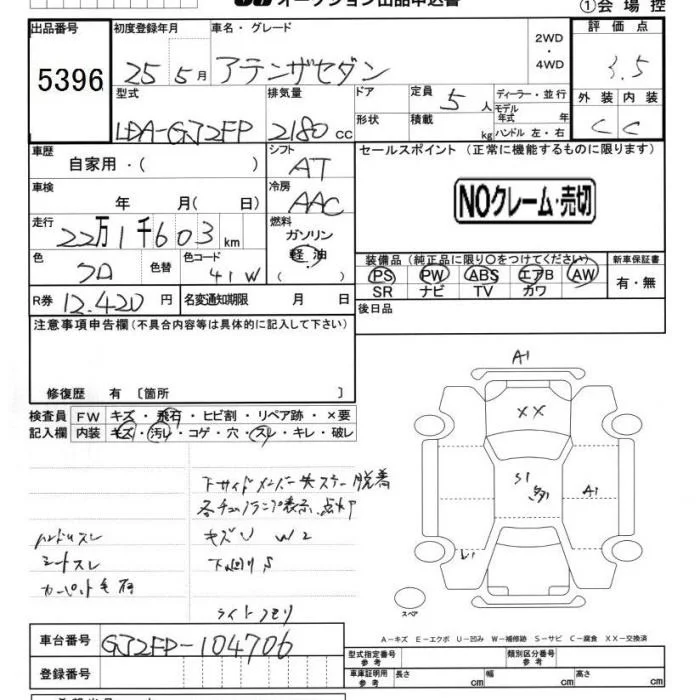 オークション出品申込書
①会場控
出品番号
5396
初度登録年月
25 5月
車名・グレード
アテンザセダン
2WD
・
4WD
評価点
3.5
型式
LDA-GJ2FP
排気量
2180 cc
ドア
形状
定員 5 人
積載 kg
ディーラー・並行
モデル年式 年
ハンドル 左・右
外装 内装
C C
車歴
自家用・( )
シフト
AT
セールスポイント (正常に機能するものに限ります)
NOクレーム・売切
車検
年 月( 日)
冷房
AAC
走行
22万1千603km
燃料
ガソリン
軽油
( )
色
クロ
色替
色コード
41W
装備品 (純正品に限り○をつけてください)
新車保証書
PS PW ABS エアB AW
SR ナビ TV カワ
有・無
R券 12,420円
名変通知期限 月 日
後日品
注意事項申告欄(不具合内容等は具体的に記入して下さい)
修復歴 有 〔箇所 〕
検査員
記入欄
FW キズ・飛石・ヒビ割・リペア跡・×要
内装 キズ・汚レ・コゲ・穴・スレ・キレ・破レ
下サイドメンバー
脱着
キズU W2
下回りS
ハンドルスレ
シートスレ
カーペット
ライトクモリ
A1
XX
S1
A1
スペア
A-キズ E-エクボ U-凹み W-補修跡 S-サビ C-腐食 XX-交換済
車台番号
GJ2FP-104706
登録番号
型式指定番号
参考
類別区分番号
参考
車庫証明用
参考
長さ cm
幅 cm
高さ cm